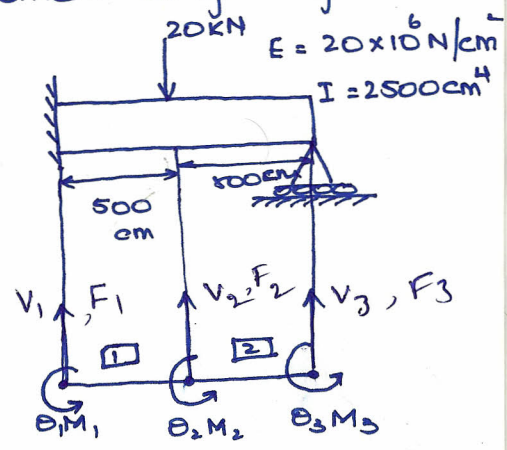 20KN
E = 20×10⁶ N/cm²
I = 2500cm⁴
500cm
500
cm
V₁, F₁
V₂, F₂
V₃, F₃
1
2
θ₁M₁
θ₂M₂
θ₃M₃